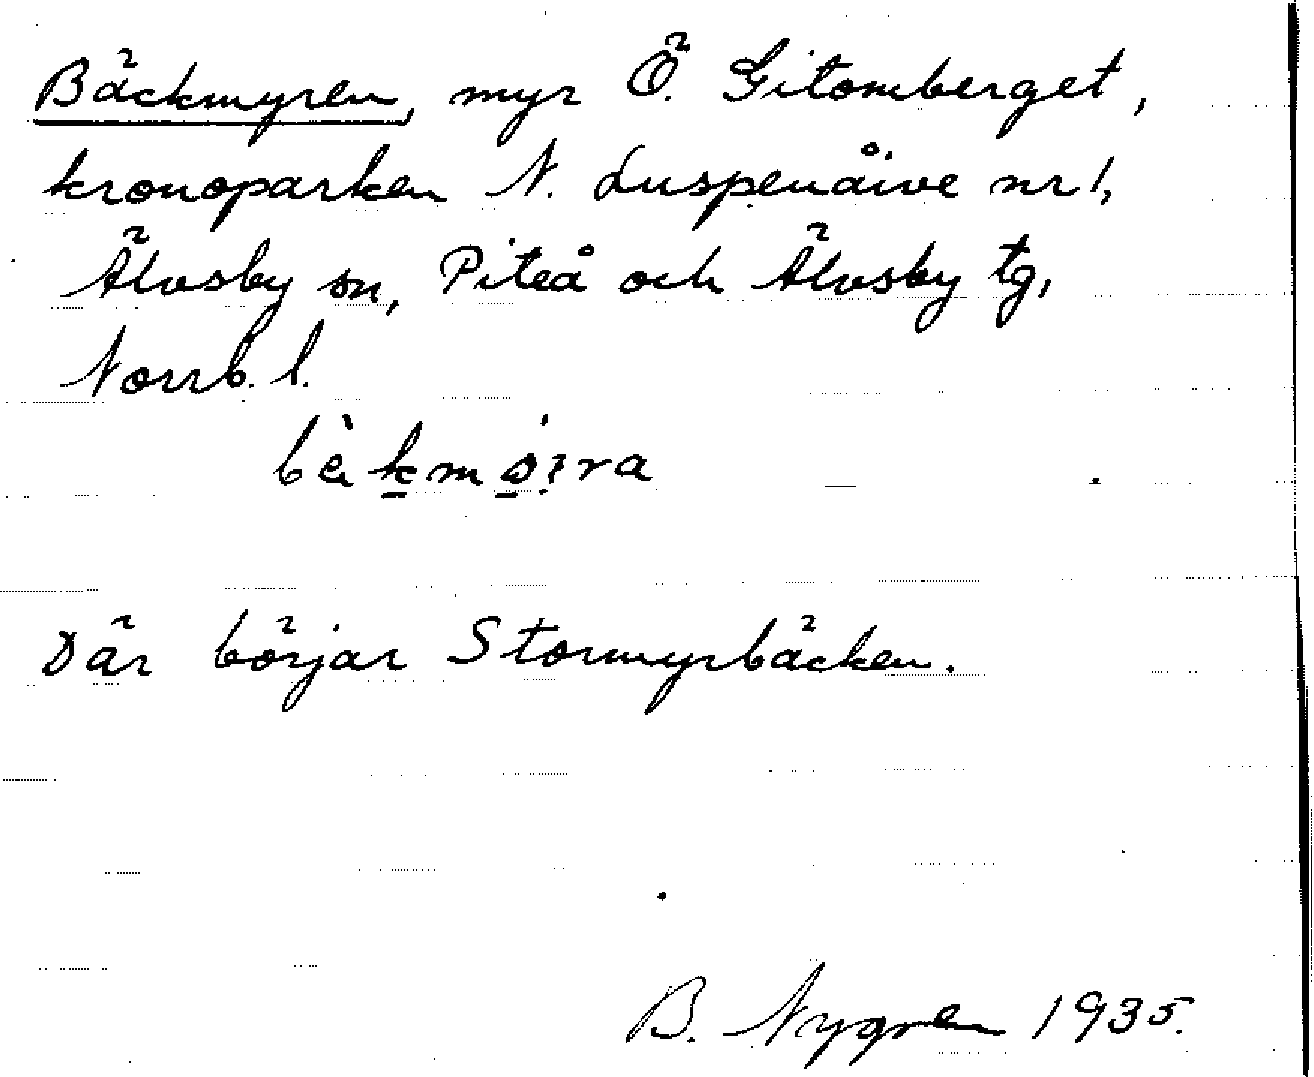 Bäckmyren, myr Ö. Gitomberget,
kronoparken N. Luspenåive nr 1,
Älvsby sn, Piteå och Älvsby tg,
Norrb. l.
Där börjar Stormyrbäcken.
B. Nygren 1935.